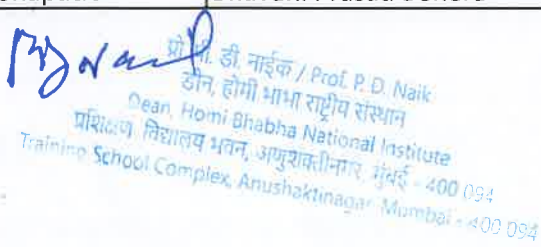 प्रो. पी. डी. नाईक / Prof. P. D. Naik
डीन, होमी भाभा राष्ट्रीय संस्थान
Dean, Homi Bhabha National Institute
प्रशिक्षण विद्यालय भवन, अणुशक्तीनगर, मुंबई - 400 094
Training School Complex, Anushaktinagar, Mumbai - 400 094